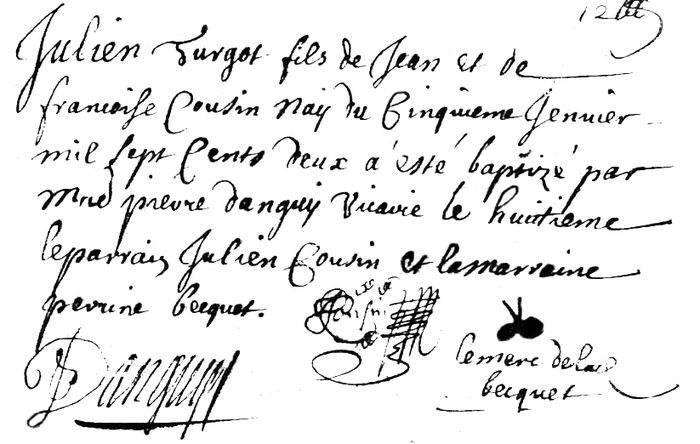 Julien Turgot fils de Jean et de
francoise Cousin Nay du Cinquieme Jenvier
mil sept Cents deux a esté baptizé par
Mre pierre danguy Vicaire le huitieme
le parrain Julien Cousin et la marraine
perrine becquet.
Cousin
Danguy
le merc de la
becquet